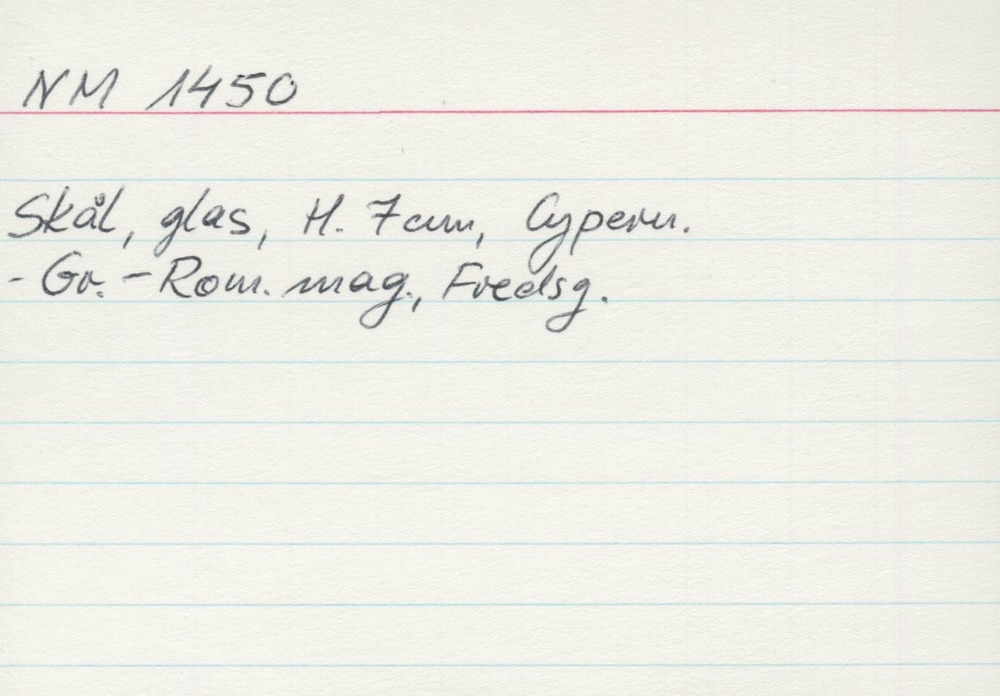 NM 1450
Skål, glas, H. 7cm, Cypern.
- Gr. - Rom. mag., Fredsg.